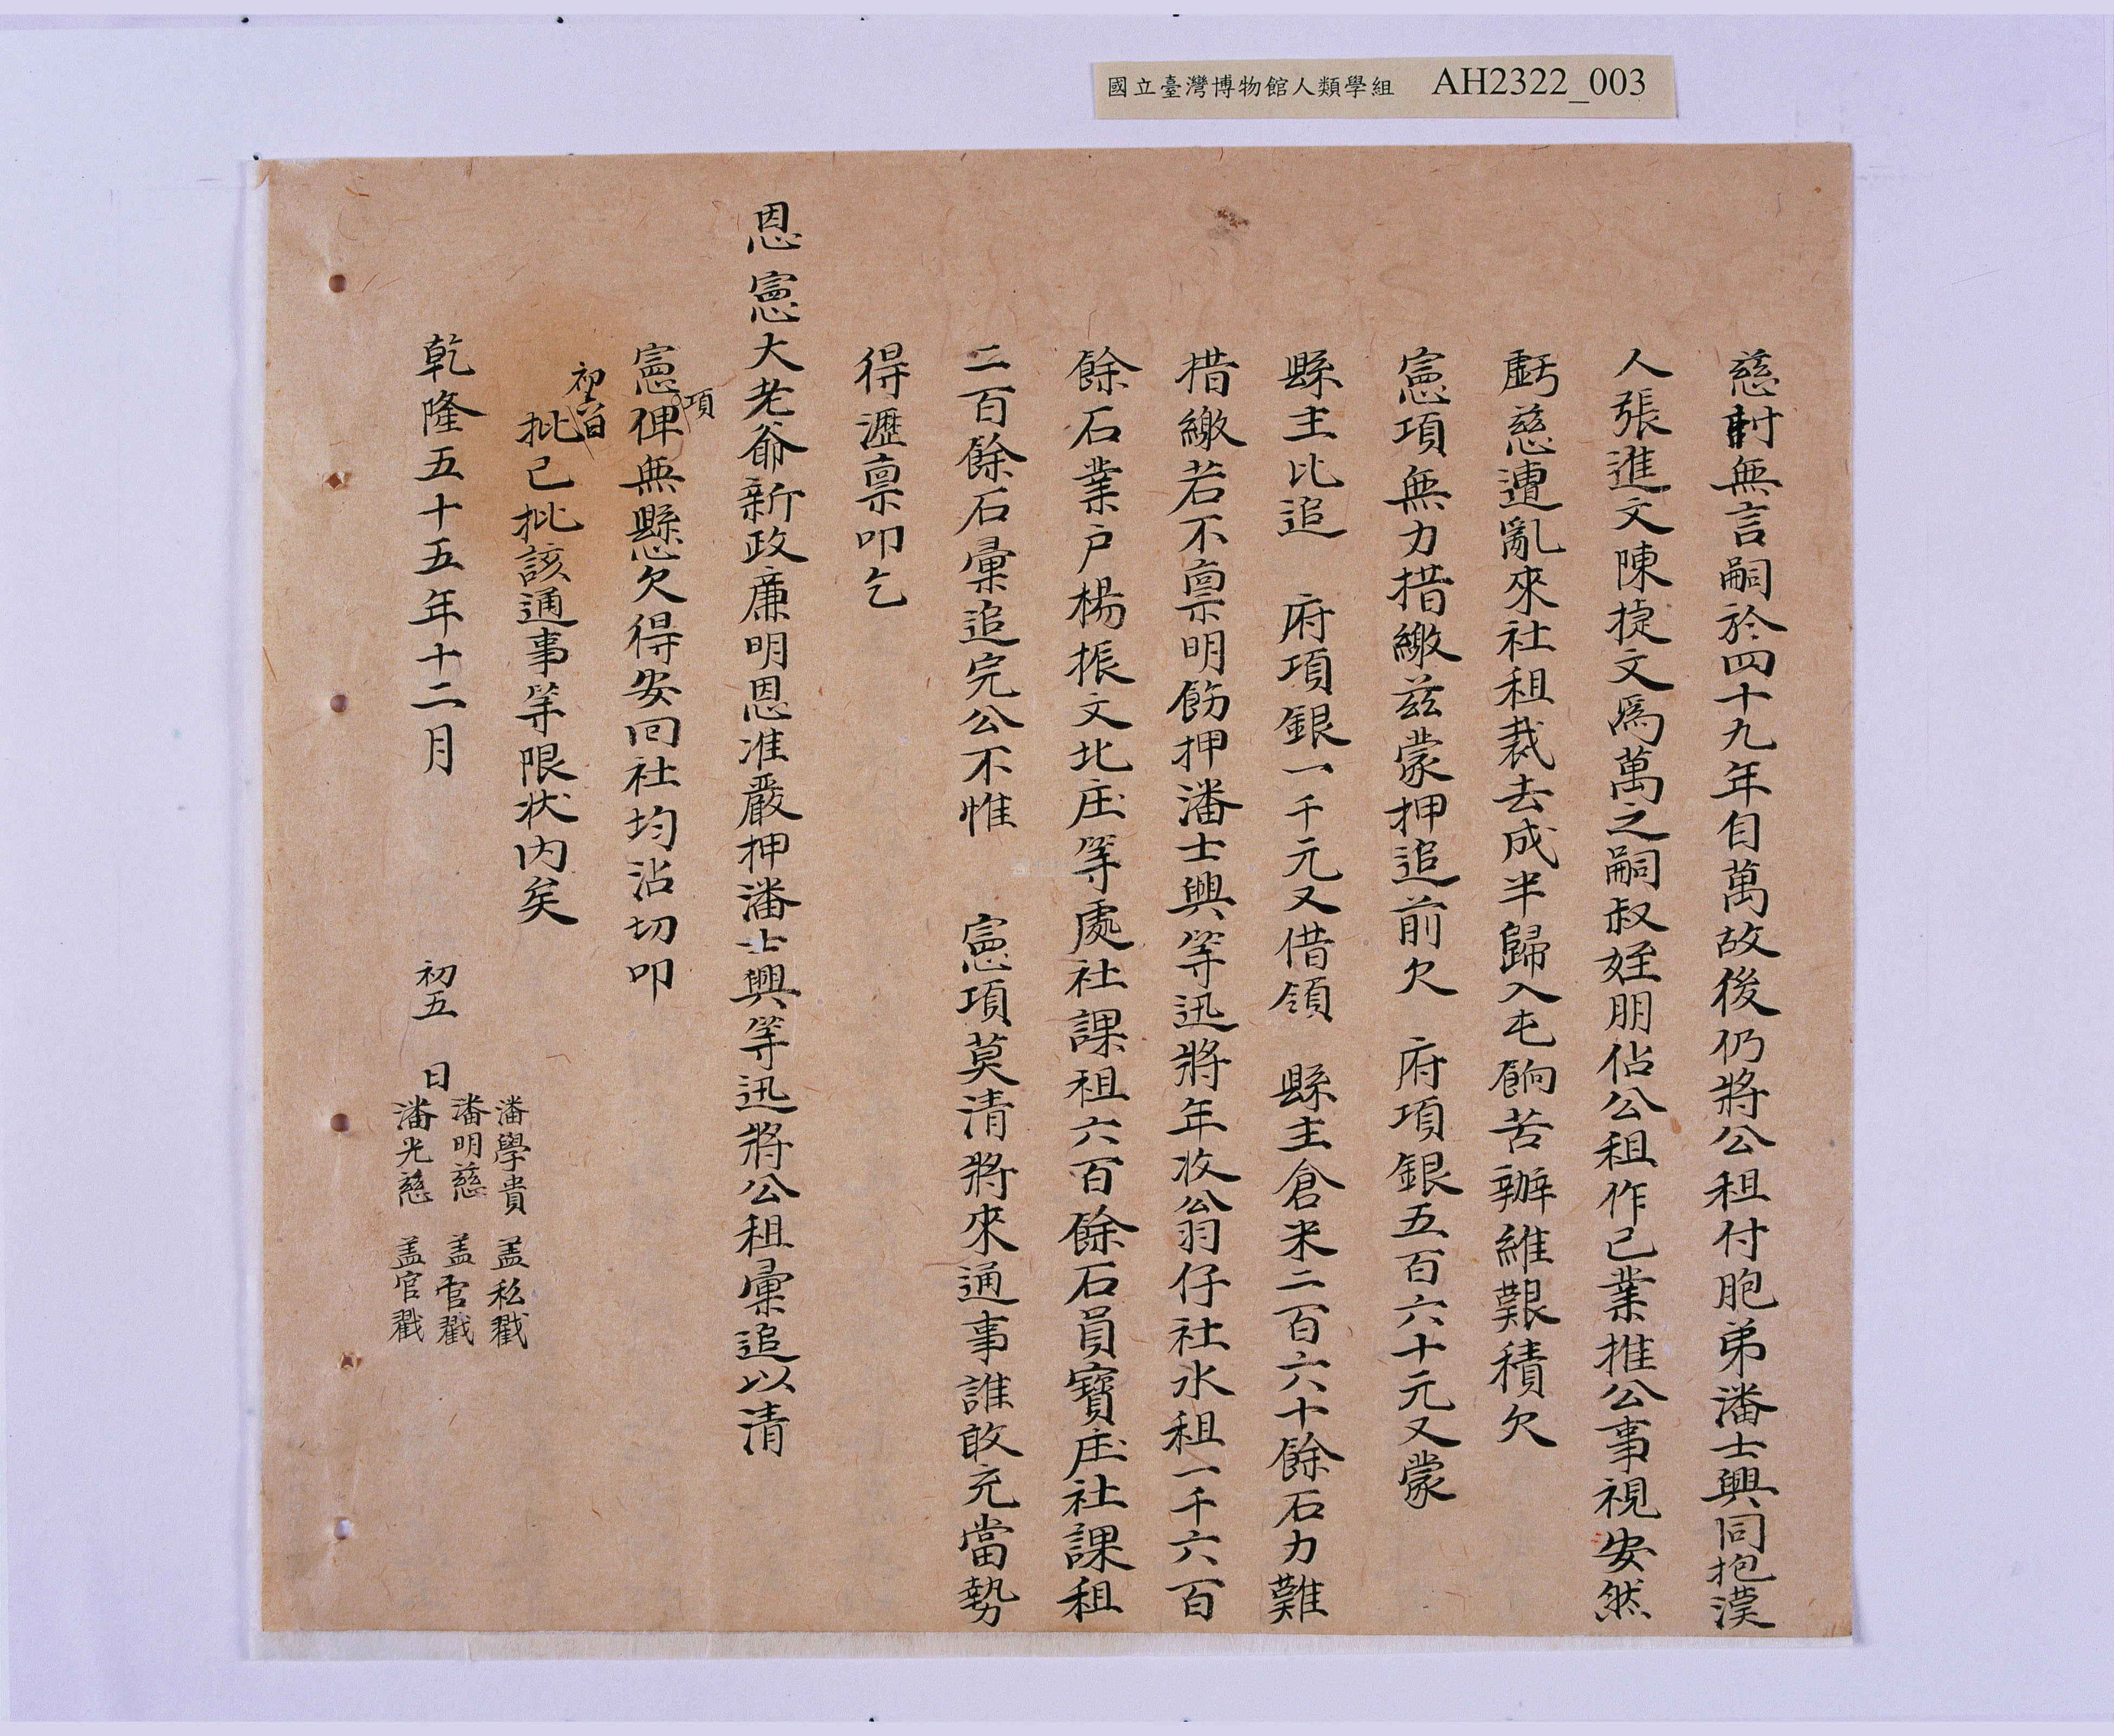 國立臺灣博物館人類學組 AH2322_003
慈討無言嗣於四十九年自萬故後仍將公租付胞弟潘士興同抱漢
人張進文陳捷文為萬之嗣叔姪朋佔公租作己業推公事視安然
虧慈遭亂來社租裁去成半歸入屯餉苦辦維艱積欠
憲項無力措繳茲蒙押追前欠 府項銀五百六十元又蒙
縣主比追 府項銀一千元又借領 縣主倉米二百六十餘石力難
措繳若不禀明飭押潘士興等迅將年收翁仔社水租一千六百
餘石業户楊振文北庄等處社課租六百餘石員寶庄社課租
二百餘石彙追完公不惟 憲項莫清將來通事誰敢充當勢
得瀝禀叩乞
恩憲大老爺新政廉明恩准嚴押潘士興等迅將公租彙追以清
項
憲俾無懸欠得安回社均沾切叩
初八日
批己批該通事等限狀內矣
乾隆五十五年十二月 初五 日
潘學貴 盖私戳
潘明慈 盖官戳
潘光慈 盖官戳